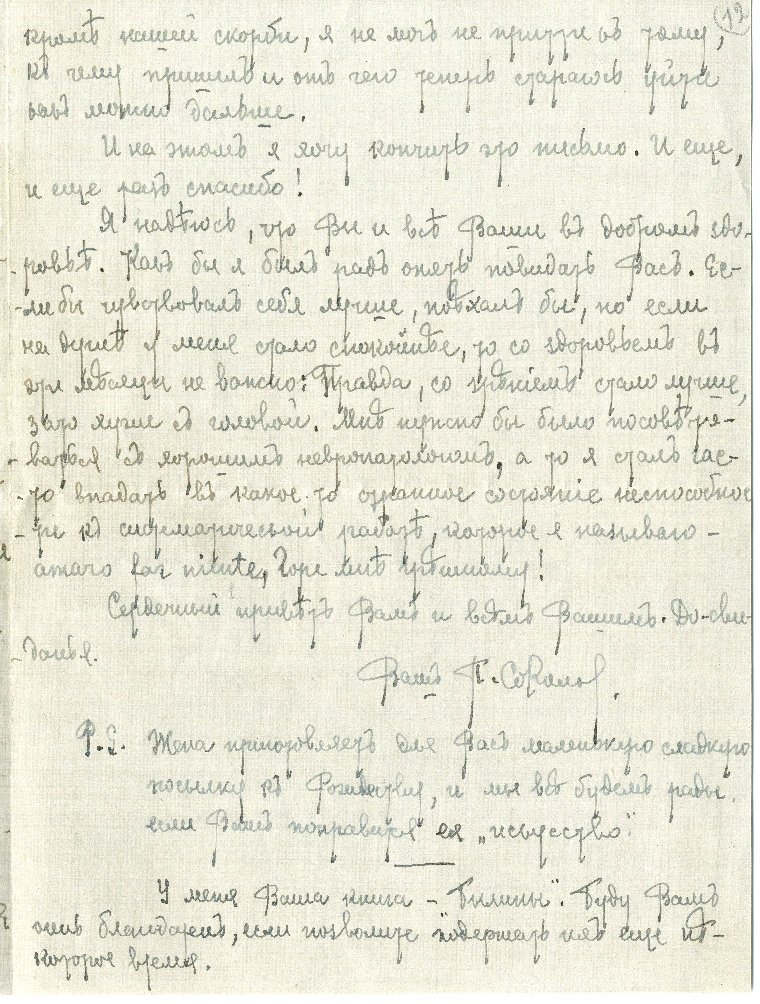 12
кромѣ нашей скорби, я не могъ не придти къ тому,
къ чему пришелъ и отъ чего теперь стараюсь уйти
какъ можно дальше.
И на этомъ я хочу кончить это письмо. И еще,
и еще разъ спасибо!
Я надѣюсь, что Вы и всѣ Ваши въ добромъ здо-
ровьѣ. Какъ бы я былъ радъ опять повидать Васъ. Ес-
ли бы чувствовалъ себя лучше, поѣхалъ бы, но если
на душѣ у меня стало спокойнѣе, то со здоровьемъ въ
эти мѣсяцы не важно: Правда, со зрѣніемъ стало лучше,
зато хуже съ головой. Мнѣ нужно бы было посовѣто-
ваться съ хорошимъ невропатологомъ, а то я сталъ час-
то впадать въ какое-то странное состояніе неспособнос-
ти къ систематической работѣ, которое я называю -
amaro far niente, Горе мнѣ грѣшному!
Сердечный привѣтъ Вамъ и всѣмъ Вашимъ. До-сви-
данья.
Вашъ П.
P.S. Жена приготовляетъ для Васъ маленькую сладкую
посылку къ Рождеству, и мы всѣ будемъ рады,
если Вамъ понравится ея „искусство".
У меня Ваша книга - „Былины". Буду Вамъ
очень благодаренъ, если позволите подержать ихъ еще нѣ-
которое время.